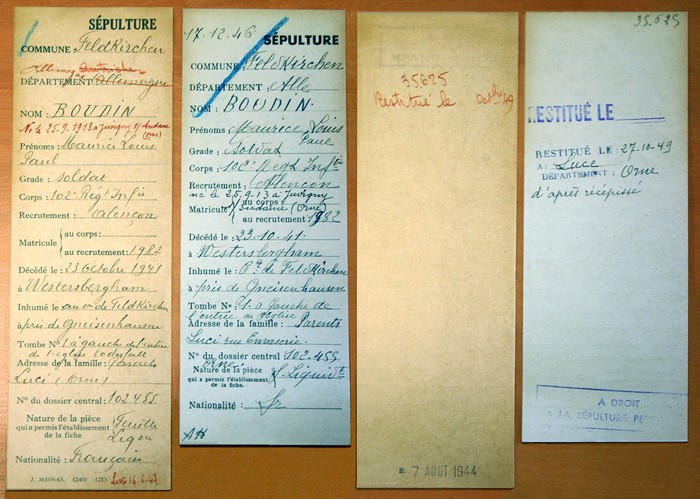 SÉPULTURE
COMMUNE Feldkirchen
Autriche
DÉPARTEMENT : Allemagne
NOM : BOUDIN
Né le 25.9.1913 à Juvigny s/Andaine
(Orne)
Prénoms : Maurice Louis
Paul
Grade : Soldat
Corps : 102e Régt Inf ie
Recrutement : Alençon
Matricule
au corps :
au recrutement : 1982
Décédé le : 23 Octobre 1941
à Westersbergham
Inhumé le : au de Feldkirchen
à près de Gneisenhausen
Tombe No 1 à gauche de l'entrée
de l'église
Adresse de la famille : Parents
Lucé (Orne)
No du dossier central : 102455
Nature de la pièce
qui a permis l'établissement
de la fiche
Feuille
Nationalité : Française
J. 36109-43. (240) (21) List 16.6.47
17.12.46
SÉPULTURE
COMMUNE Feldkirchen
DÉPARTEMENT : Alle
NOM : BOUDIN.
Prénoms : Maurice Louis
Paul
Grade : Soldat
Corps : 102e Regt Inf tie
Recrutement : Alençon
né le 25.9.13 à Juvigny
Matricule
au corps :
s/Andaine (Orne)
au recrutement 1982
Décédé le : 23.10.41.
à Westersbergham
Inhumé le : Cre de Feldkirchen
à près de Gneisenhausen
Tombe No : 1. à gauche de
l'entrée de l'église
Adresse de la famille : Parents
Lucé rue
Orne.
No du dossier central : 102.455
Nature de la pièce
qui a permis l'établissement
de la fiche
Nationalité : Fr
AH
35.625
Restitué le 49
7 AOUT 1944
35.625
RESTITUÉ LE
RESTITUÉ LE : 27-10-49
A : Lucé
DÉPARTEMENT : Orne
d'après récépissé
A DROIT
A LA SÉPULTURE PE